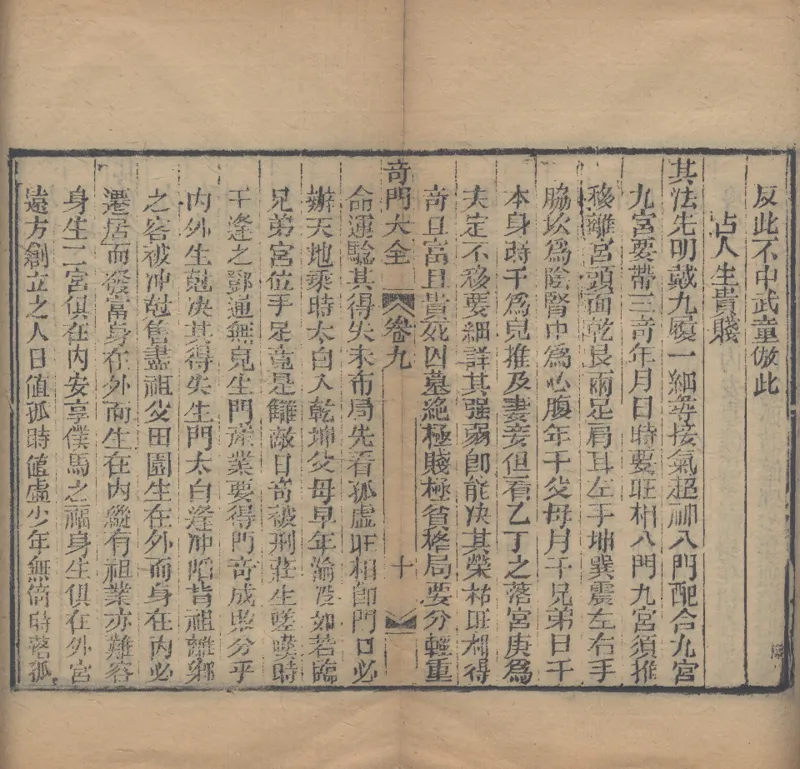 反此不中武童倣此
占人生貴賤
其法先明戴九履一細尋接氣超神八門配合九宮
九宮要帶三竒年月日時要旺相八門九宮須推
移離宮頭面乾艮兩足肩耳左手坤巽震左右手
脇坎爲陰腎中爲心腹年干父母月干兄弟日干
本身時干爲兒推及妻妾但看乙丁之落宮庚爲
夫定不移要細詳其强弱卽能决其榮枯旺相得
竒且富且貴死囚墓絶極賤極貧格局要分輕重
竒門大全 卷九 十
命運騐其得失未布局先看孤虛旺相卽門口必
辦天地乘時太白入乾坤父母早年淪沒如若臨
兄弟宮位手足竟是讎敵日竒被刑莊生嗟嘆時
干逢之鄧通無兒生門產業要得門竒成敗分乎
内外生尅决其得失生門太白逢冲陷皆祖離鄉
之客被冲尅舊盡祖父田園生在外而身在内必
遷居而發富身在外而生在内縱有祖業亦難容
身生二宮俱在内安享僕馬之福身生俱在外宮
遠方創立之人日值孤時值虛少年無倚時落孤